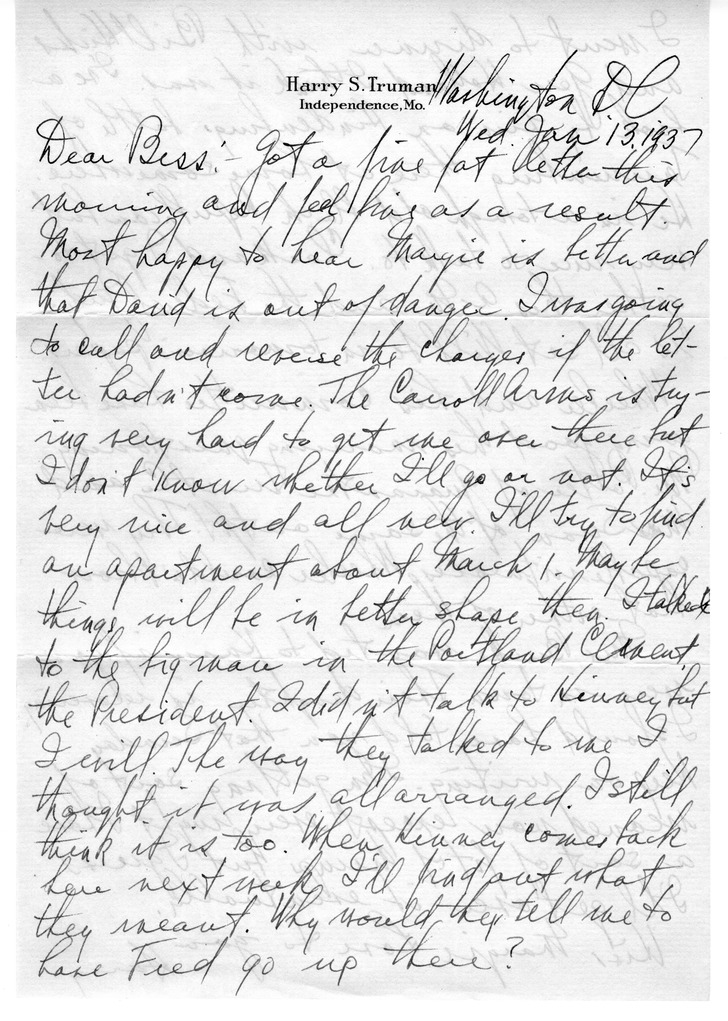 Harry S. Truman
Independence, Mo.
Washington DC
Wed. Jan 13, 1937
Dear Bess:- Got a fine fat letter this
morning and feel fine as a result.
Most happy to hear Margie is better and
that David is out of danger. I was going
to call and reverse the charges if the let-
ter hadn't come. The Carroll Arms is try-
ing very hard to get me over there but
I don't know whether I'll go or not. It's
very nice and all new. I'll try to find
an apartment about March 1. Maybe
things will be in better shape then. I talked
to the big man in the Portland Cement,
the President. I didn't talk to Kinney but
I will. The way they talked to me I
thought it was all arranged. I still
think it is too. When Kinney comes back
here next week I'll find out what
they meant. Why would they tell me to
have Fred go up there?